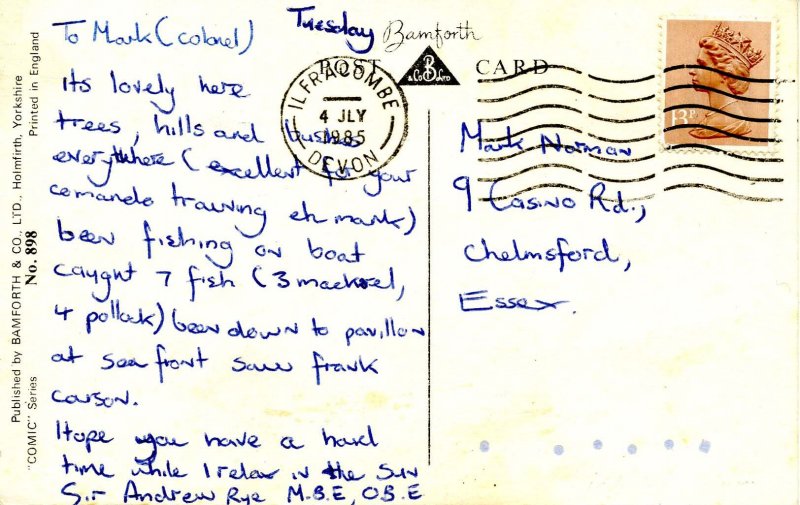 Tuesday
To Mark (colonel)
Its lovely here
trees, hills and bushes
everywhere (excellent for your
comando training eh mark)
been fishing on boat
caught 7 fish (3 mackrel,
4 pollock) been down to pavillon
at sea front saw frank
carson.
Hope you have a hard
time while I relax in the sun
Sir Andrew Rye M.B.E, O.B.E
Bamforth
POST CARD
B
& Co LTD
ILFRACOMBE
4 JLY
1985
DEVON
13P
Mark Norman
9 Casino Rd.,
Chelmsford,
Essex.
Published by BAMFORTH & CO., LTD., Holmfirth, Yorkshire
"COMIC" Series No. 898 Printed in England